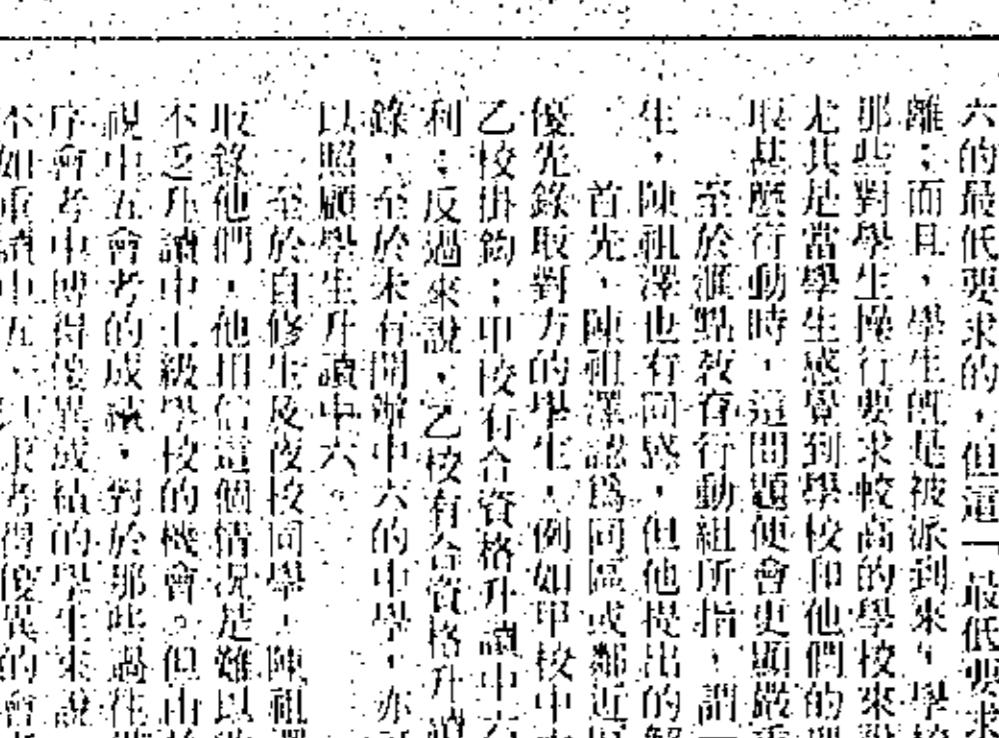 六的最低要求的，但這一最低要求
離；而且，學生既是被派到來，學校
那些對學生操行要求較高的學校來說
尤其是當學生感覺到學校和他們的
取甚麼行動時，這問題便會更顯嚴重
至於滙點教育行動組所指，謂一
生，陳祖澤也有同感，但他提出的解
首先，陳祖澤認爲同區或鄰近
優先錄取對方的學生，例如甲校中
乙校掛鈎；甲校有合資格升讀中六
利；反過來說，乙校有合資格升讀
錄，至於未有開辦中六的中學，亦
以照顧學生升讀中六。
至於自修生及夜校同學，陳祖
取錄他們，他相信這個情況是難以
不乏升讀中七級學校的機會。但由
視中五會考的成績，對於那些過往
序會考中博得優異成績的學生來說
不如重讀中五，以求考得優異的會